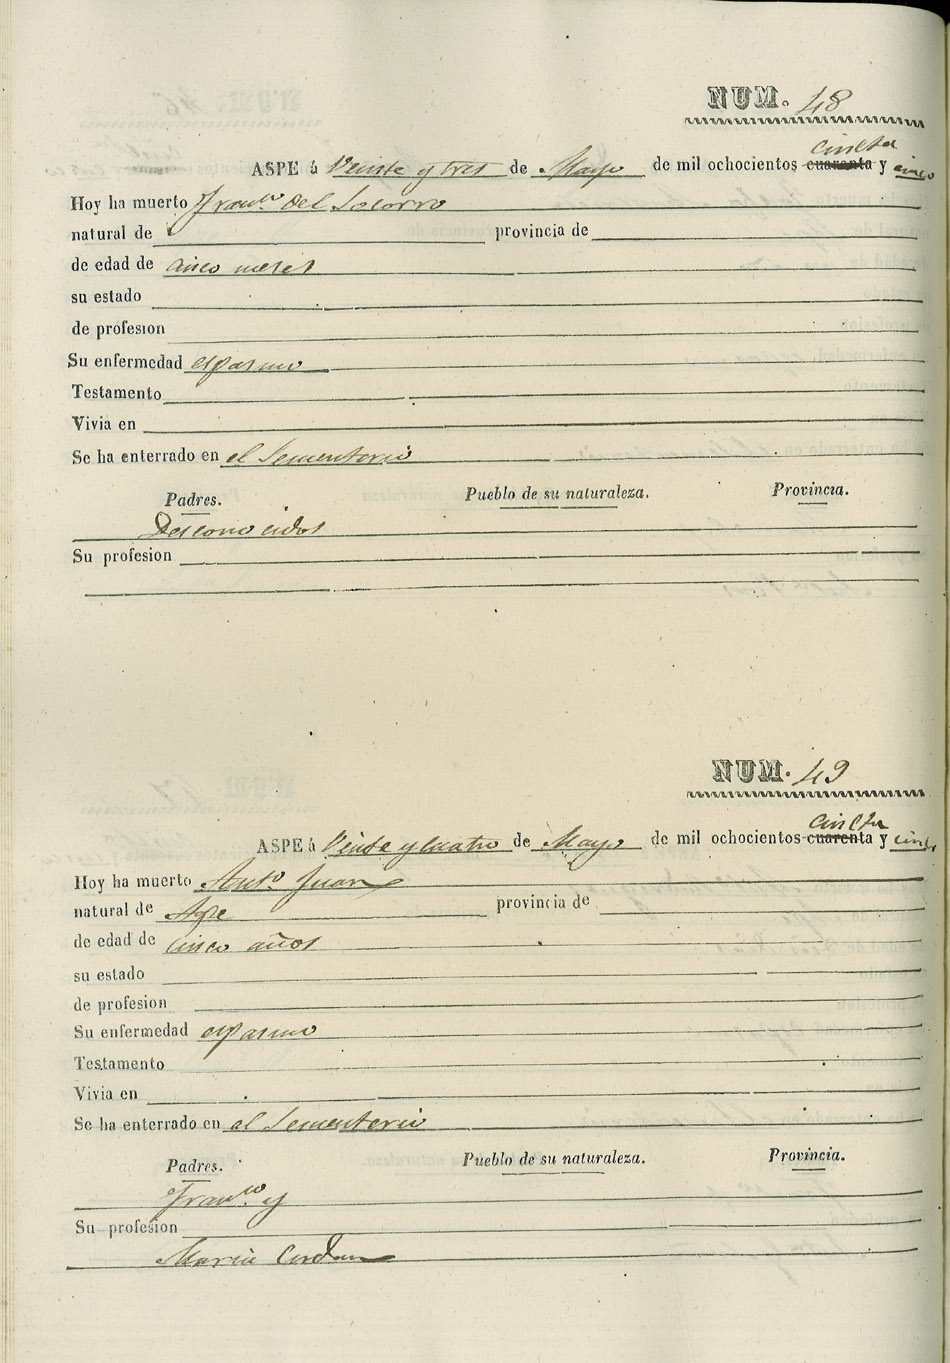 NUM. 48
cincta
ASPE á Veinte y tres de Mayo de mil ochocientos cuarenta y cinco
Hoy ha muerto Fran.co del Socorro
natural de provincia de
de edad de cinco meses
su estado
de profesion
Su enfermedad espasmo
Testamento
Vivia en
Se ha enterrado en el Sementerio
Padres. Pueblo de su naturaleza. Provincia.
Desconocidos
Su profesion
NUM. 49
cincta
ASPE á Veinte y cuatro de Mayo de mil ochocientos cuarenta y cinco
Hoy ha muerto Ant.o Juan
natural de Aspe provincia de
de edad de cinco años
su estado
de profesion
Su enfermedad espasmo
Testamento
Vivia en
Se ha enterrado en al Sementerio
Padres. Pueblo de su naturaleza. Provincia.
Fran.co y
Su profesion
Maria